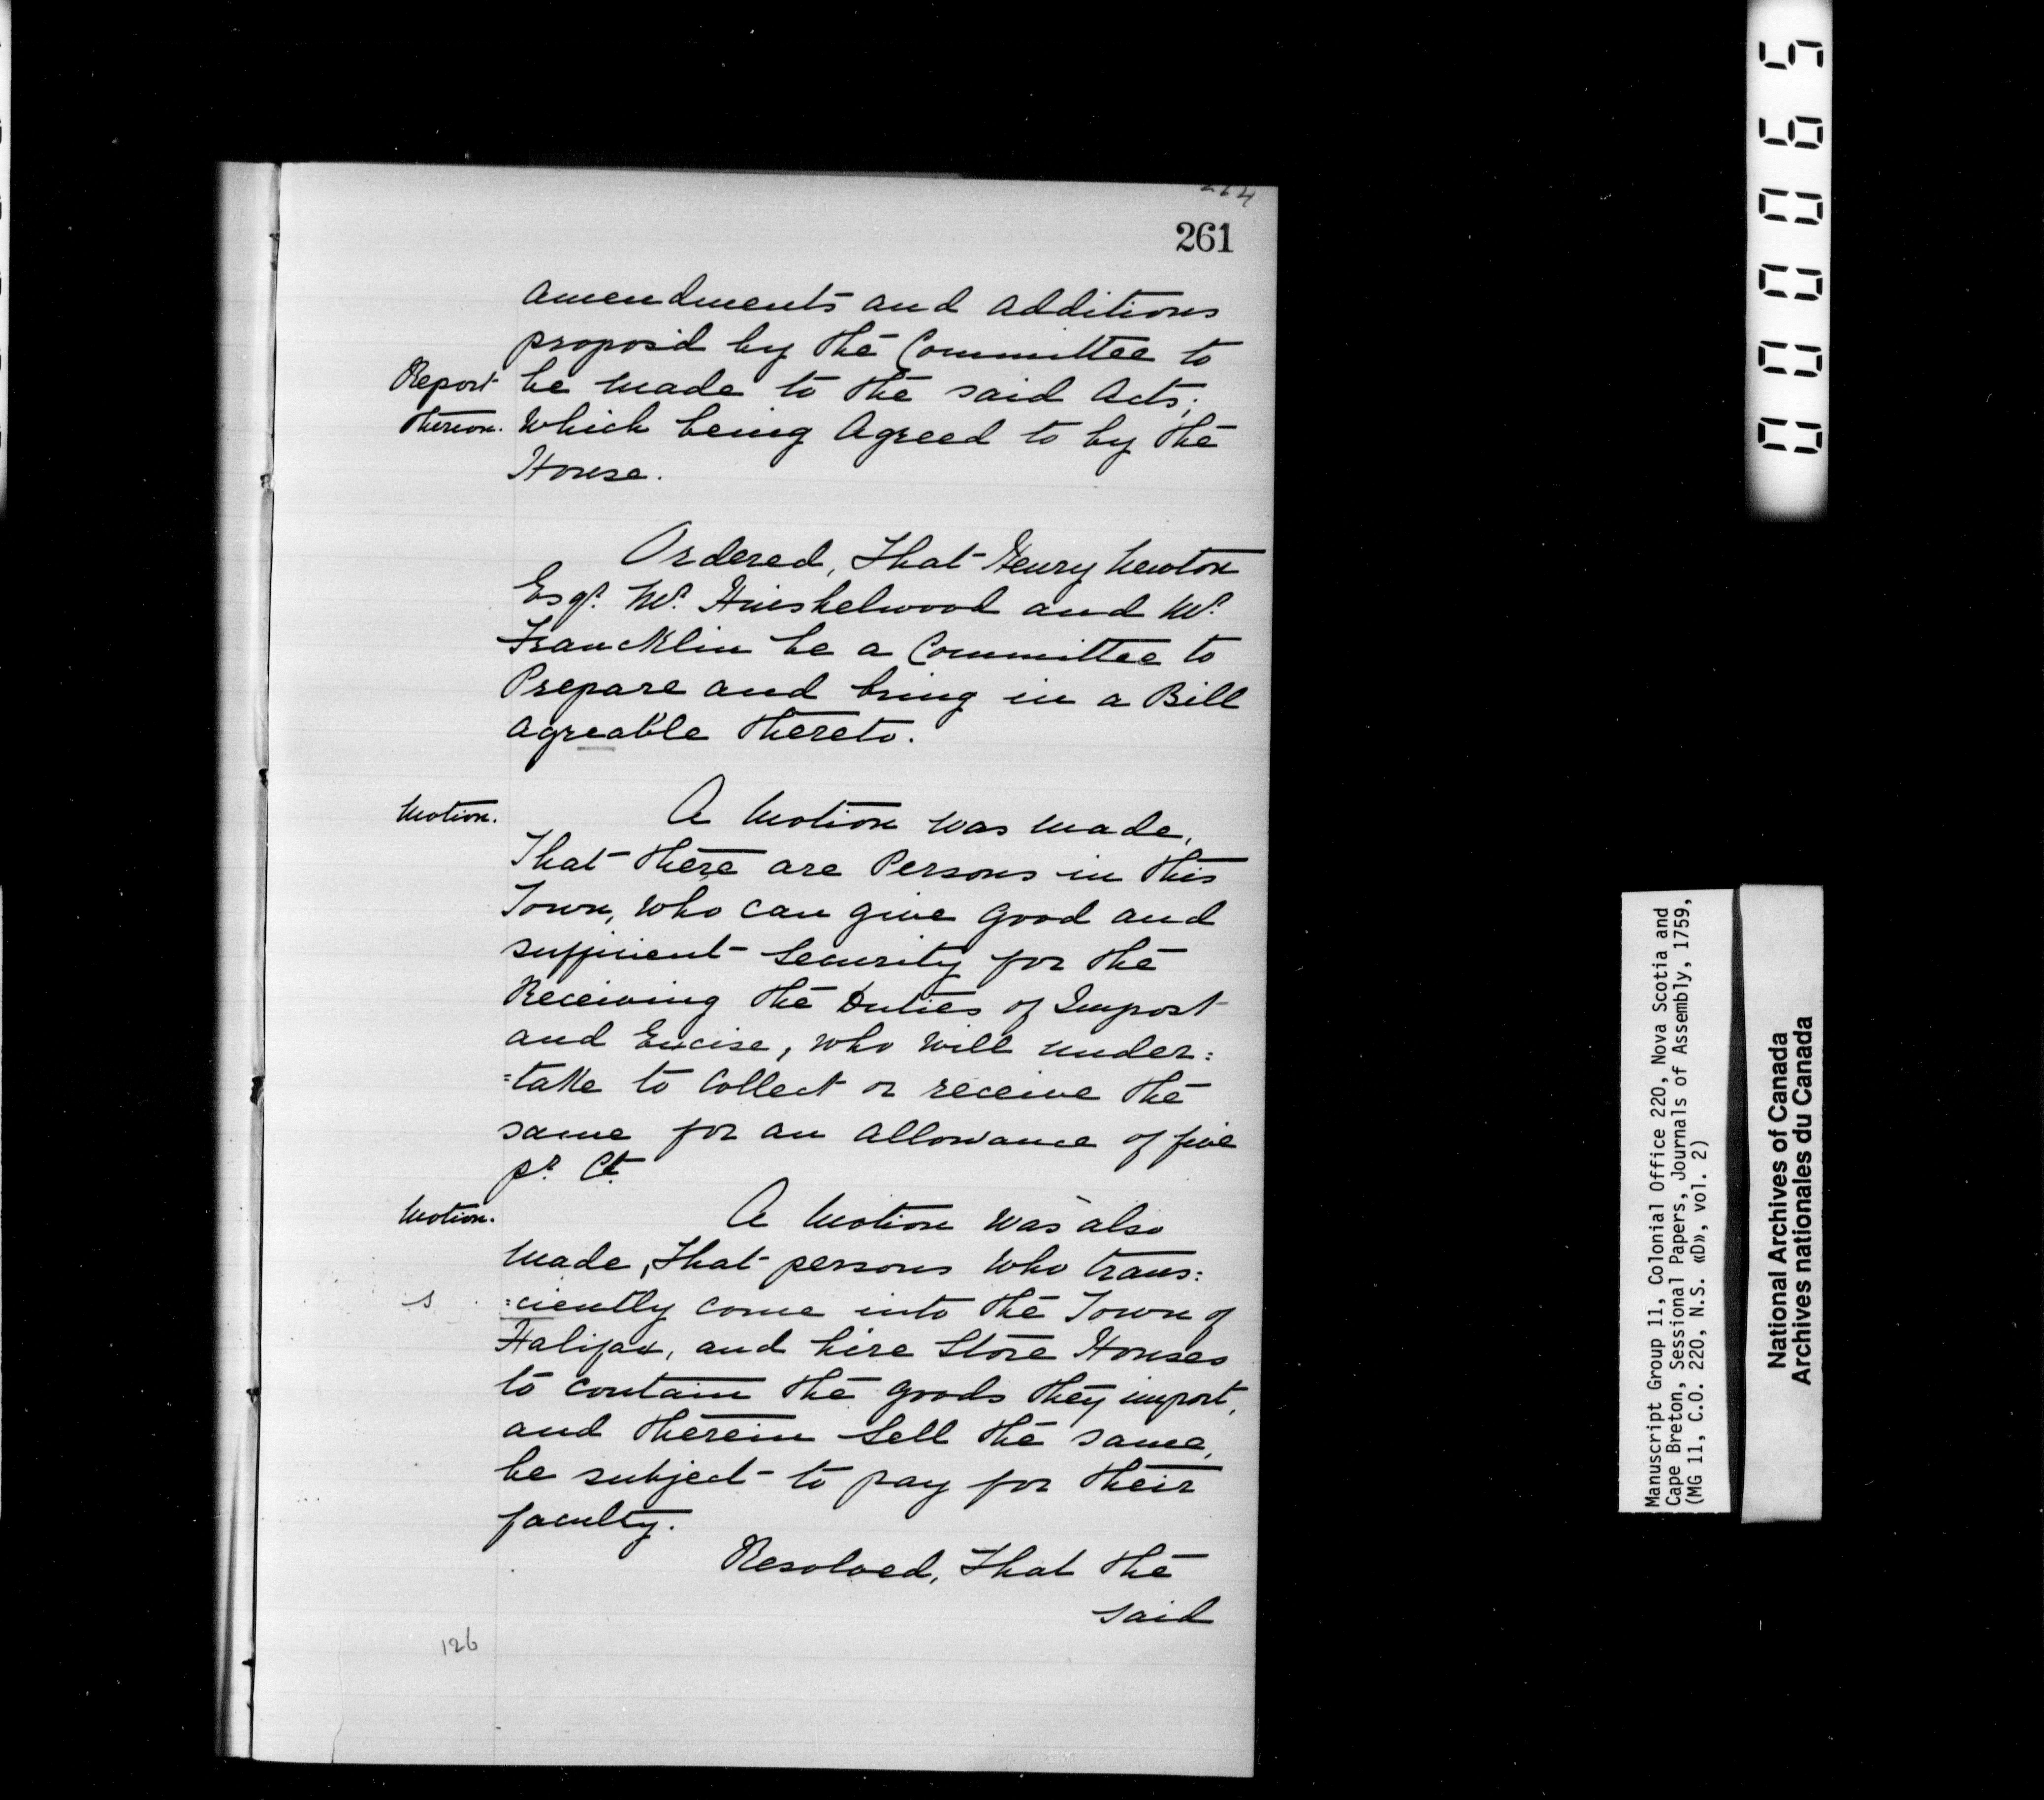 261
amendments and additions
propos'd by the Committee to
Report be made to the said Acts;
thereon. Which being Agreed to by the
House.
Ordered, That Henry Newton
Esqr. Mr. Hinshelwood and Mr.
Francklin be a Committee to
Prepare and bring in a Bill
agreable thereto.
Motion. A Motion was made,
That there are Persons in this
Town, who can give good and
sufficient Security for the
Receiving the Duties of Impost
and Excise, who will under:
=take to Collect or receive the
same for an allowance of five
pr. Ct.
Motion. A Motion was also
made, That persons who trans:
s =ciently come into the Town of
Halifax, and hire Store Houses
to contain the goods they import,
and therein Sell the same,
be subject to pay for their
faculty.
Resolved, That the
said
126
000065
Manuscript Group 11, Colonial Office 220, Nova Scotia and
Cape Breton, Sessional Papers, Journals of Assembly, 1759,
(MG 11, C.O. 220, N.S. «D», vol. 2)
National Archives of Canada
Archives nationales du Canada